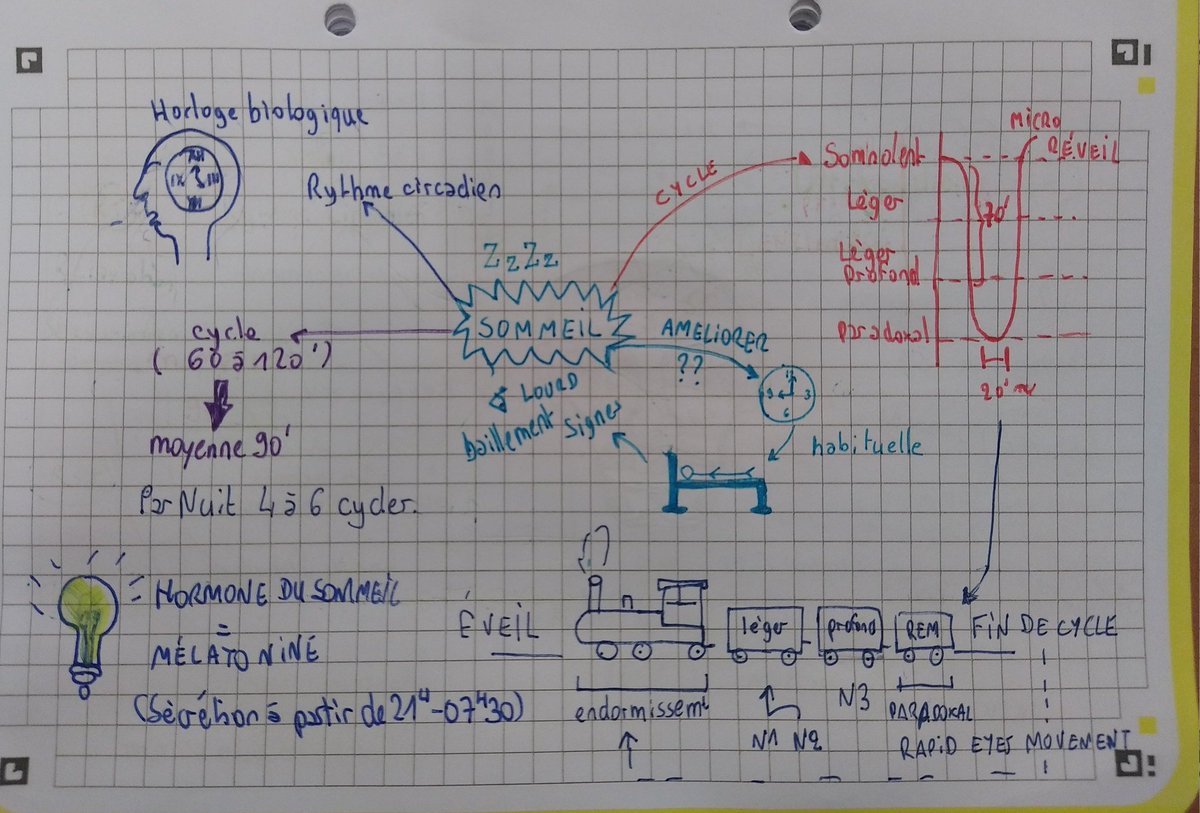 Horloge biologique
Rythme circadien
ZzZz
SOMMEIL
cycle
( 60 à 120')
moyenne 90'
Par Nuit 4 à 6 cycles.
HORMONE DU SOMMEIL
=
MÉLATONINE
(Sécrétion à partir de 21H-07H30)
CYCLE
Somnolent
MICRO
RÉVEIL
Léger
70'
Léger
profond
Paradoxal
20'
AMELIORER
??
12
9 3
6
habituelle
LOURD
baillement
signes
ÉVEIL
léger
profond
REM
FIN DE CYCLE
endormissemt
N1 N2
N3
PARADOXAL
RAPID EYES MOVEMENT